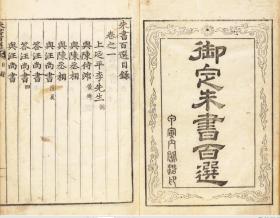 御定朱書百選
甲寅內閣活印
朱書百選目錄
卷之一
上延平李先生
與陳侍郞
與陳丞相
與陳丞相
與汪尚書
答汪尚書
答汪尚書
與汪尚書